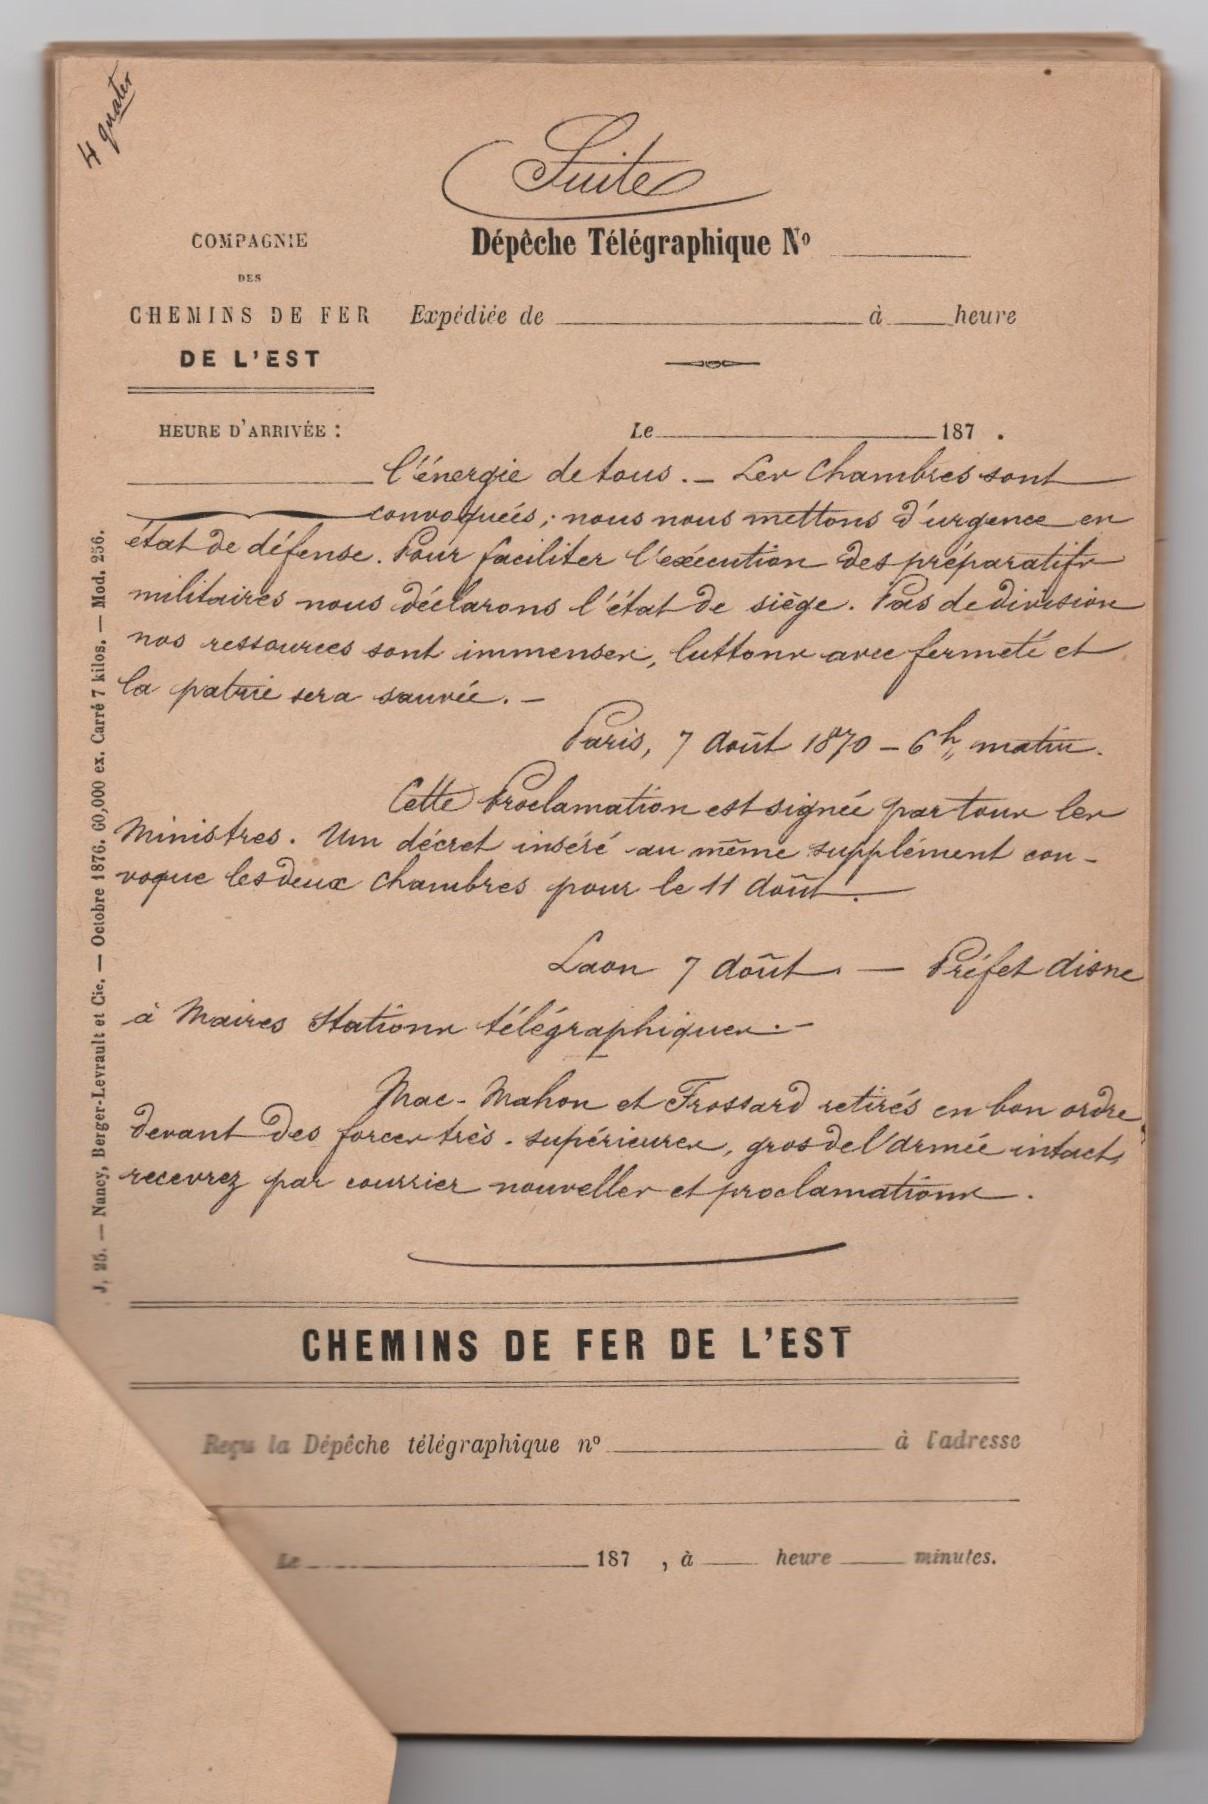 4 quater
Suite
COMPAGNIE
DES
CHEMINS DE FER
DE L'EST
Dépêche Télégraphique Nº
Expédiée de à heure
HEURE D'ARRIVÉE :
Le 187 .
l'énergie de tous. — Les Chambres sont
convoquées ; nous nous mettons d'urgence en
état de défense. Pour faciliter l'exécution des préparatifs
militaires nous déclarons l'état de siège. Pas de division
nos ressources sont immenses, luttons avec fermeté et
la patrie sera sauvée. —
Paris, 7 Août 1870 — 6h, matin.
Cette Proclamation est signée par tous les
Ministres. Un décret inséré au même supplément con-
voque les deux Chambres pour le 11 Août.
Laon 7 Août. — Préfet Aisne
à Maires Stations télégraphiques. —
Mac-Mahon et Frossard retirés en bon ordre
devant des forces très-supérieures, gros de l'Armée intact,
recevrez par courrier nouvelles et proclamations.
CHEMINS DE FER DE L'EST
Reçu la Dépêche télégraphique nº à l'adresse
Le 187 , à heure minutes.
J, 25. — Nancy, Berger-Levrault et Cie. — Octobre 1876. 60,000 ex. Carré 7 kilos. — Mod. 256.